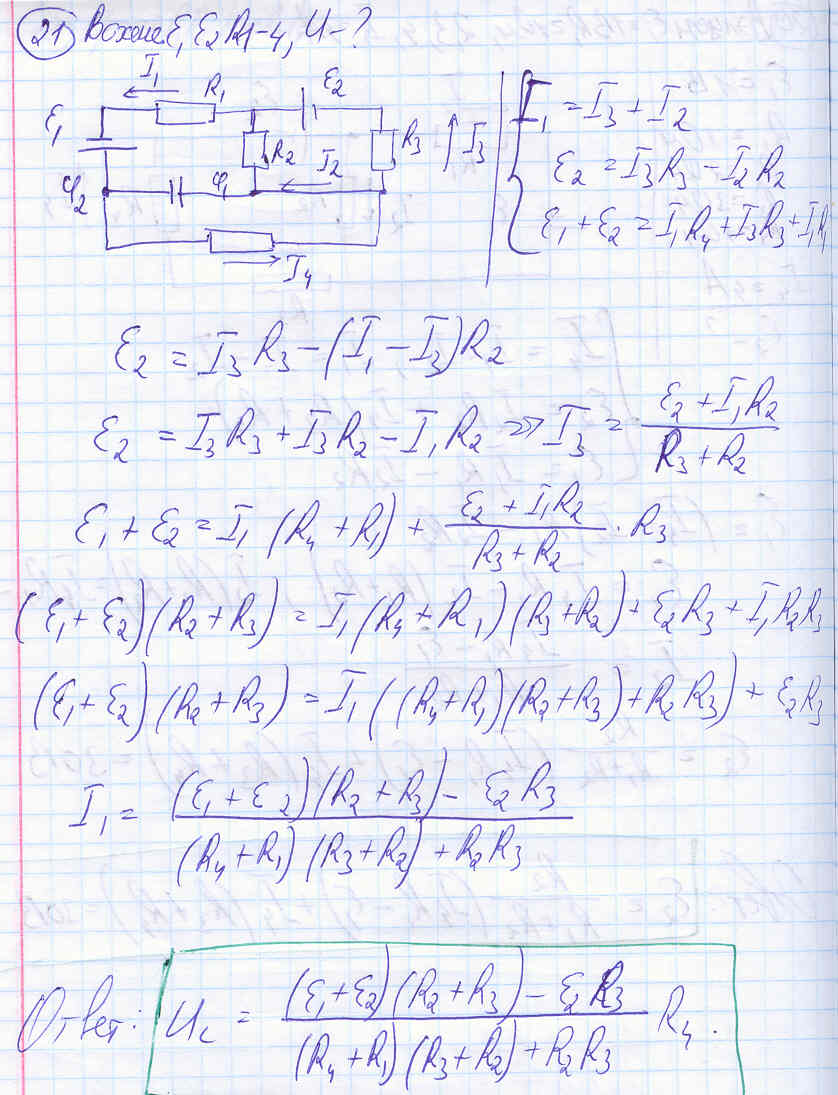 21) ε₁ ε₂ R1-4, U-?
I₁
R₁
ε₂
ε₁
R₂
I₂
R₃
I₃
φ₂
φ₁
I₄
I₁ = I₃ + I₂
ε₂ = I₃R₃ - I₂R₂
ε₁ + ε₂ = I₁R₄ + I₃R₃ + I₁R₁
ε₂ = I₃R₃ - (I₁ - I₃)R₂
ε₂ = I₃R₃ + I₃R₂ - I₁R₂ => I₃ = (ε₂ + I₁R₂)/(R₃ + R₂)
ε₁ + ε₂ = I₁(R₄ + R₁) + (ε₂ + I₁R₂)/(R₃ + R₂) · R₃
(ε₁ + ε₂)(R₂ + R₃) = I₁(R₄ + R₁)(R₃ + R₂) + ε₂R₃ + I₁R₂R₃
(ε₁ + ε₂)(R₂ + R₃) = I₁((R₄ + R₁)(R₂ + R₃) + R₂R₃) + ε₂R₃
I₁ = ((ε₁ + ε₂)(R₂ + R₃) - ε₂R₃)/((R₄ + R₁)(R₃ + R₂) + R₂R₃)
Ответ: U_c = ((ε₁ + ε₂)(R₂ + R₃) - ε₂R₃)/((R₄ + R₁)(R₃ + R₂) + R₂R₃) R₄.